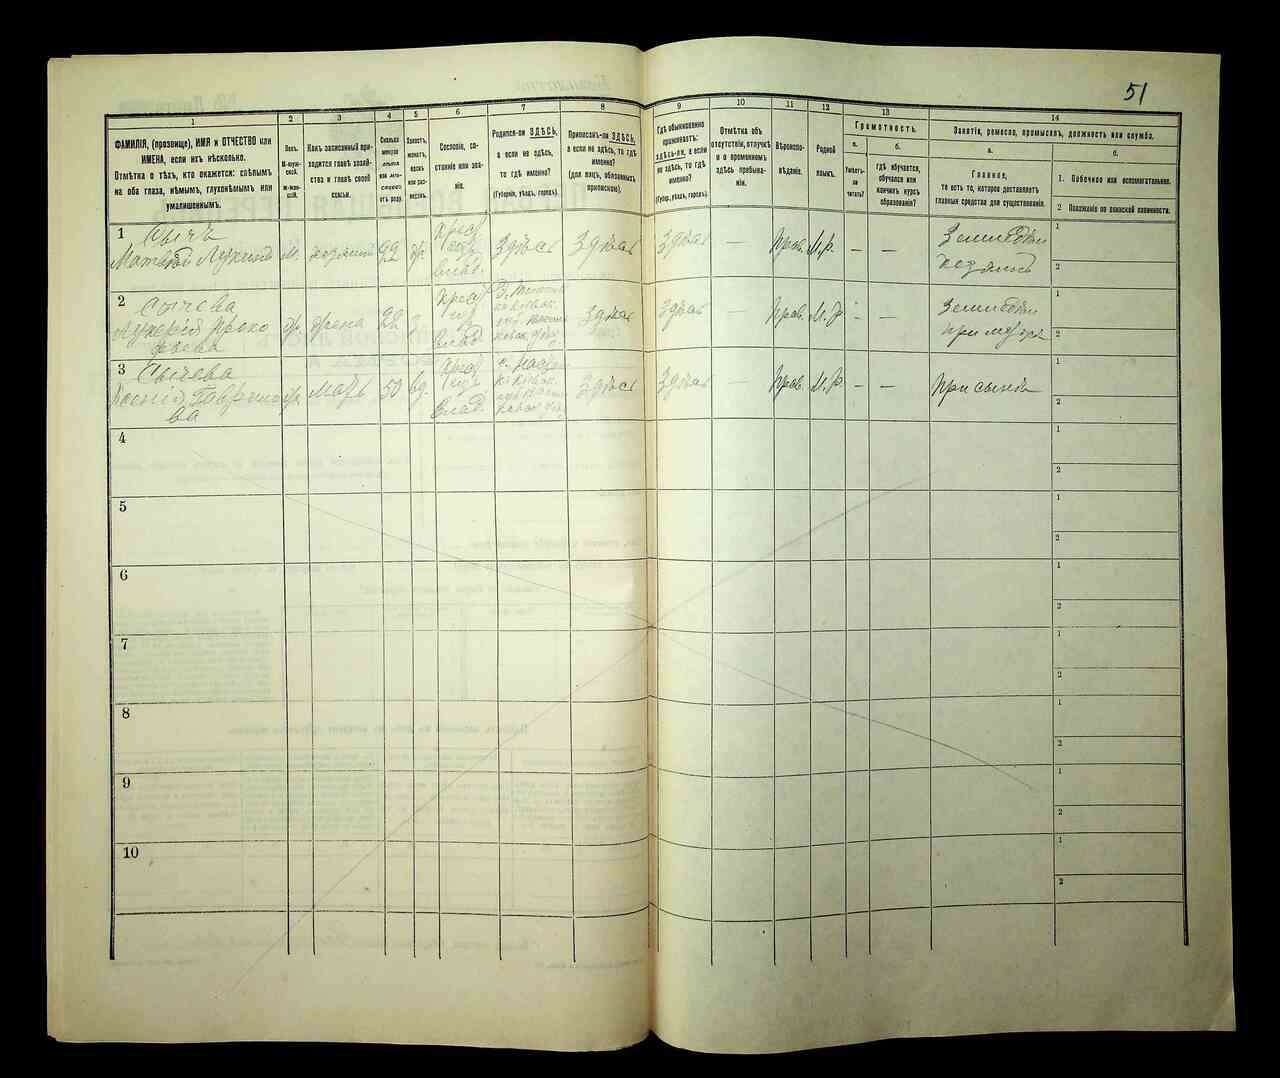 51
1 2 3 4 5 6 7 8 9 10 11 12 13 14
ФАМИЛІЯ, (прозвище), ИМЯ и ОТЧЕСТВО или
ИМЕНА, если ихъ нѣсколько.
Отмѣтка о тѣхъ, кто окажется: слѣпымъ
на оба глаза, нѣмымъ, глухонѣмымъ или
умалишеннымъ.
Полъ.
М-муж-
ской.
Ж-жен-
скій.
Какъ записанный при-
ходится главѣ хозяй-
ства и главѣ своей
семьи.
Сколько
минуло
лѣтъ
или мѣся-
цевъ
отъ роду.
Холостъ,
женатъ,
вдовъ
или раз-
веденъ.
Сословіе, со-
стояніе или зва-
ніе.
Родился-ли ЗДѢСЬ,
а если не здѣсь,
то гдѣ именно?
(Губернія, уѣздъ, городъ).
Приписанъ-ли ЗДѢСЬ,
а если не здѣсь, то гдѣ
именно?
(для лицъ, обязанныхъ
припискою).
Гдѣ обыкновенно
проживаетъ:
ЗДѢСЬ-ли, а если
не здѣсь, то гдѣ
именно?
(Губер., уѣздъ, городъ).
Отмѣтка объ
отсутствіи, отлучкѣ
и о временномъ
здѣсь пребыва-
ніи.
Вѣроиспо-
вѣданіе.
Родной
языкъ.
Грамотность.
а.
Умѣетъ-
ли
читать?
б.
гдѣ обучается,
обучался или
кончилъ курсъ
образованія?
Занятіе, ремесло, промыселъ, должность или служба.
а.
Главное,
то есть то, которое доставляетъ
главныя средства для существованія.
б.
1. Побочное или вспомогательное.
2 Положеніе по воинской повинности.
1
Сычъ
Матвѣй Лукинъ
М.
хозяинъ
22
ж.
крес.
влад.
Здѣсь
Здѣсь
Здѣсь
—
Прав.
М.р.
—
—
Земледѣл
хозяинъ
1
2
2
Сычева
ж.
жена
22
крес.
влад.
Здѣсь
Здѣсь
—
Прав.
М.р.
—
—
Земледѣл
при мужѣ
1
2
3
Сычева
ж.
мать
50
вд.
влад.
Здѣсь
Здѣсь
—
Прав.
М.р.
—
—
При сынѣ
1
2
4
1
2
5
1
2
6
1
2
7
1
2
8
1
2
9
1
2
10
1
2